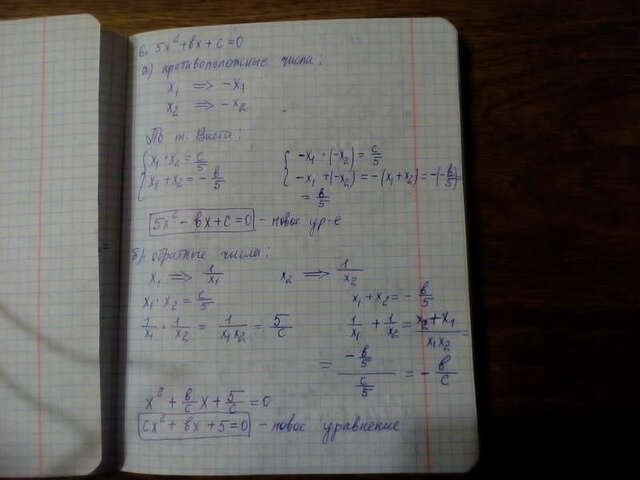 6. 5x² + bx + c = 0
а) противоположные числа:
x₁ ⇒ -x₁
x₂ ⇒ -x₂
По т. Виета:
{ x₁ · x₂ = c/5
x₁ + x₂ = - b/5
{ -x₁ · (-x₂) = c/5
-x₁ + (-x₂) = -(x₁ + x₂) = -(-b/5) =
= b/5
5x² - bx + c = 0 - новое ур-е
б) обратные числа:
x₁ ⇒ 1/x₁ x₂ ⇒ 1/x₂
x₁ · x₂ = c/5 x₁ + x₂ = - b/5
1/x₁ · 1/x₂ = 1/x₁x₂ = 5/c 1/x₁ + 1/x₂ = x₂ + x₁/x₁x₂ =
= (-b/5)/(c/5) = - b/c
x² + b/c x + 5/c = 0
cx² + bx + 5 = 0 - новое уравнение